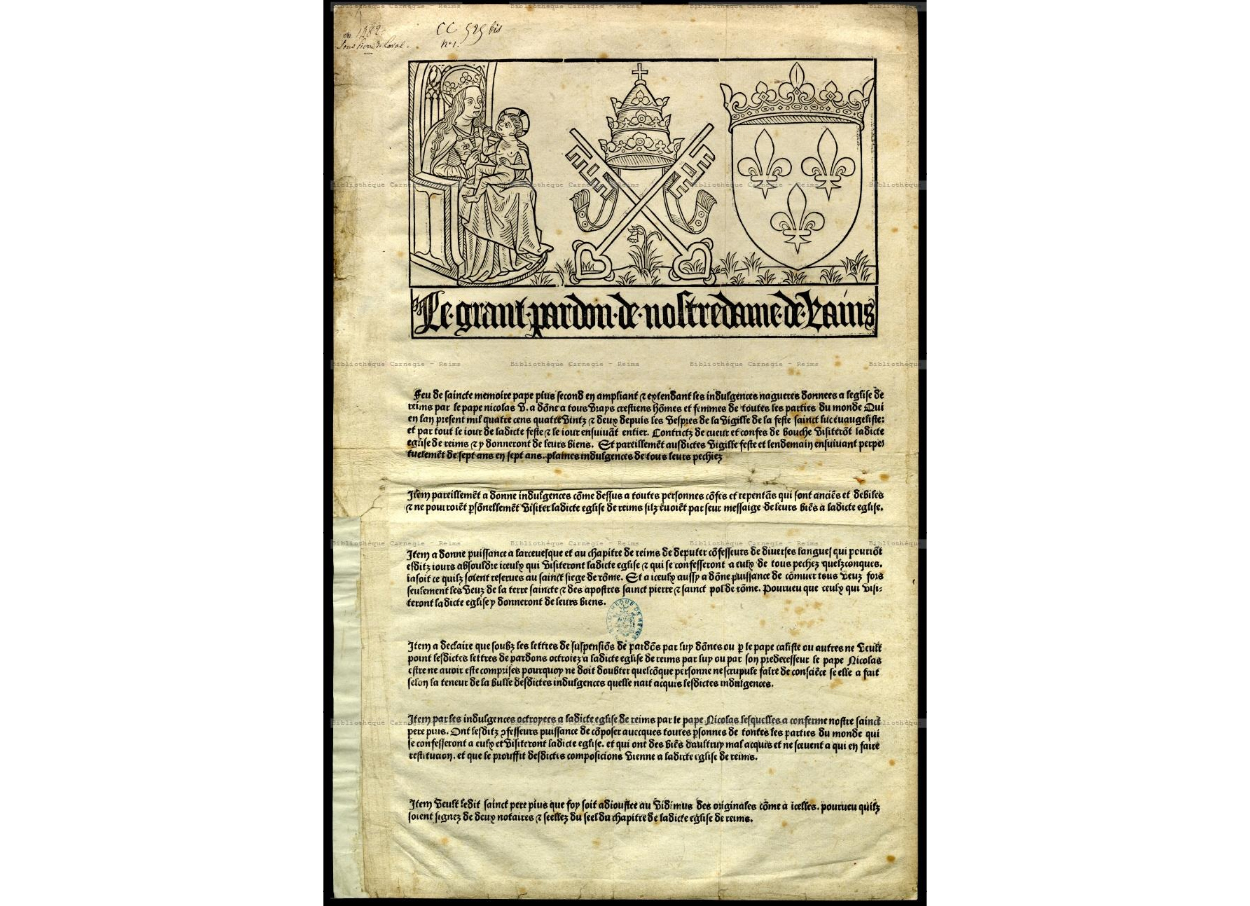 CC 525 bis
n° 1.
Le·grant·pardon·de·nostredame·de·Rains
Feu de saincte memoire pape pius second en ampliant ⁊ extendant les indulgences nagueres donnees a leglise de
reims par le pape nicolas V. a dōne a tous vrays crestiens hōmes et femmes de toutes les parties du monde Qui
en lan present mil quatre cens quatre vintz ⁊ deux depuis les vespres de la vigille de la feste sainct luc euangeliste:
et par tout le iour de ladicte feste ⁊ le iour ensuiuāt entier. Contrictz de cueur et confes de bouche visiterōt ladicte
eglise de reims ⁊ y donneront de leurs biens. Et pareillemēt ausdictes vigille feste et lendemain ensuiuant perpe
tuelemēt de sept ans en sept ans. plaines indulgences de tous leurs pechiez
Item pareillemēt a donne indulgences cōme dessus a toutes personnes cōfes et repentās qui sont anciēs et debiles
⁊ ne pourroiēt psōnellemēt visiter ladicte eglise de reims silz ēuoiēt par leur messaige de leurs biēs a ladicte eglise.
Item a donne puissance a larceuesque et au chapitre de reims de deputer cōfesseurs de diuerses langues qui pourrōt
esditz iours absouldre iceulx qui visiteront ladicte eglise ⁊ qui se confesseront a eulx de tous pechez quelzconques.
ia soit ce quilz soient reserues au sainct siege de rōme. Et a iceulx aussy a dōne puissance de cōmuer tous veuz fors
seulement les veuz de la terre saincte ⁊ des apostres sainct pierre ⁊ sainct pol de rōme. Pourueu que ceulx qui visi-
teront ladicte eglise y donneront de leurs biens.
Item a declaire que soubz les lettres de suspensiōs de pardōs par luy dōnes ou p le pape calixte ou autres ne veult
point lesdictes lettres de pardons octroiez a ladicte eglise de reims par luy ou par son predecesseur le pape Nicolas
estre ne auoir este comprises pourquoy ne doit doubter quelcōque personne ne scrupule faire de consciēce se elle a fait
selon la teneur de la bulle desdictes indulgences quelle nait acquis lesdictes indulgences.
Item par les indulgences octroyees a ladicte eglise de reims par le pape Nicolas lesquelles a conferme nostre sainct
pere pius. Ont lesditz ꝯfesseurs puissance de cōposer auecques toutes psonnes de toutes les parties du monde qui
se confesseront a eulx et visiteront ladicte eglise. et qui ont des biēs daultruy mal acquis et ne scauent a qui en faire
restitucion. et que le prouffit desdictes composicions vienne a ladicte eglise de reims.
Item veult ledit sainct pere pius que foy soit adioustee au vidimus des originales cōme a icelles. pourueu quilz
soient signez de deux notaires ⁊ seellez du seel du chapitre de ladicte eglise de reims.
Bibliothèque Carnegie - Reims